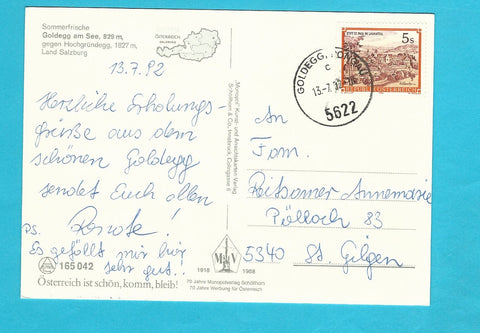 Sommerfrische
Goldegg am See, 829 m,
gegen Hochgründegg, 1827 m,
Land Salzburg
13.7.92
Herzliche Erholungs-
grüße aus dem
schönen Goldegg
sendet Euch allen
Renate!
PS.
Es gefällt mir hier
sehr gut!!
165 042
Österreich ist schön, komm, bleib!
ÖSTERREICH
SALZBURG
"Monopol" Kunst- und Ansichtskarten-Verlag
Schöllhorn & Co, Innsbruck, Colingasse 6
1918 M V 1988
70 Jahre Monopolverlag Schöllhorn
70 Jahre Werbung für Österreich
5 S
REPUBLIK ÖSTERREICH
GOLDEGG
c
13.-7.
5622
An
Fam.
Reitsamer Annemarie
Pöllach 83
5340 St. Gilgen